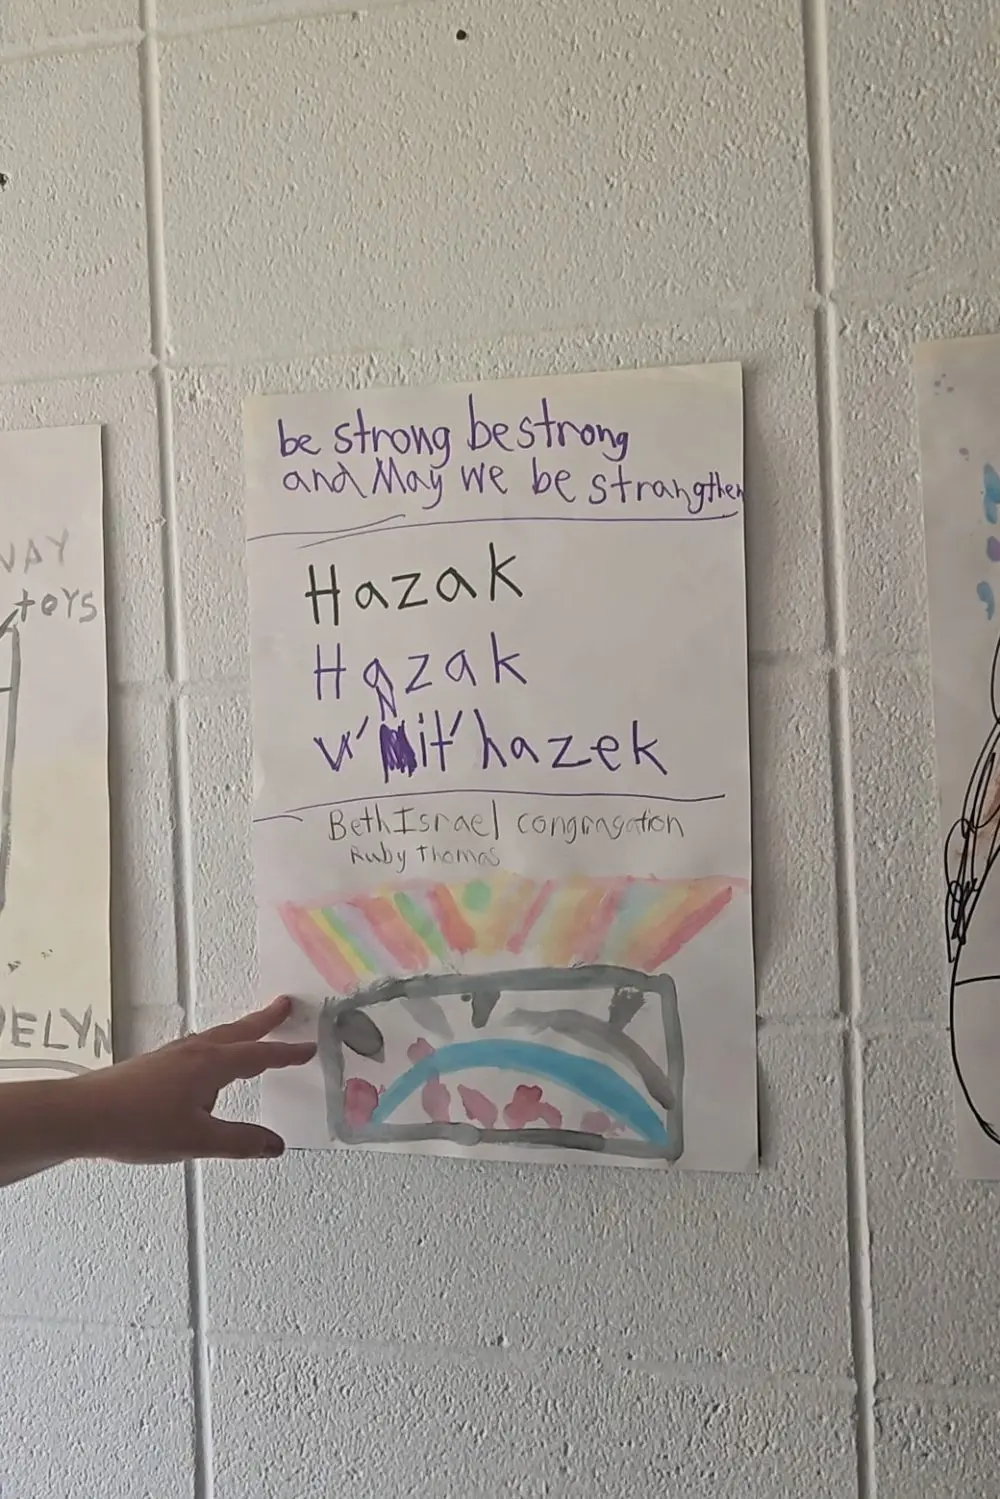 be strong be strong
and May we be strangthen
Hazak
Hazak
v'nit'hazek
Beth Israel congragation
Ruby Thomas
WAY
toys
ELYN